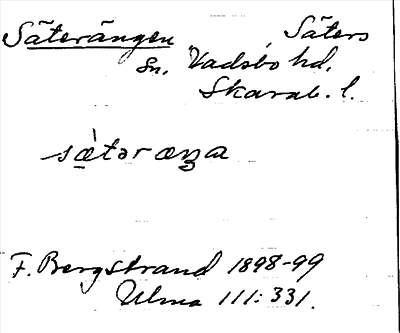 Säterängen Säters
sn. Vadsbo hd.
Skarab. l.
sæ̀tər æŋa
F. Bergstrand 1898-99
Ulma 111:331.